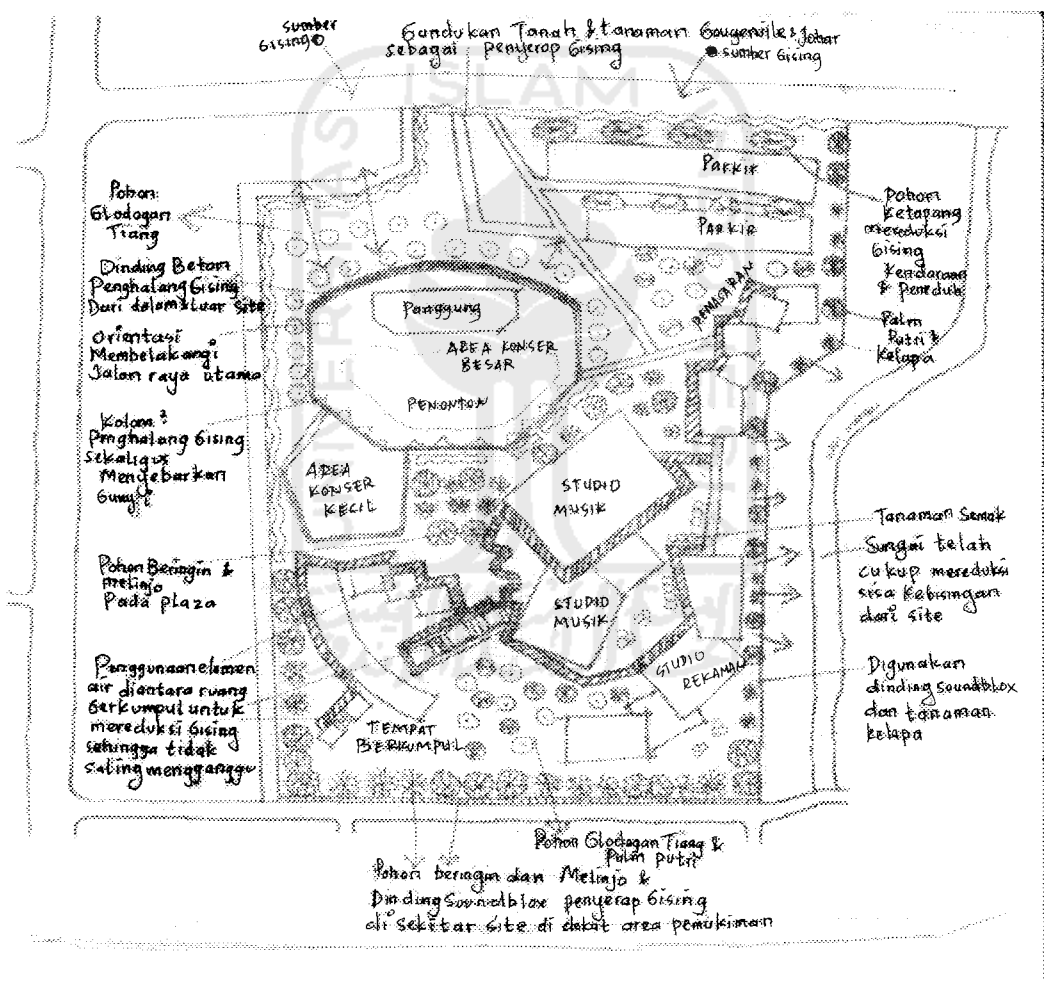 Sumber
Bising
Gundukan Tanah & tanaman Bougenvile & Johar
sebagai penyerap Bising
sumber Bising
ISLAM
UNIVERSITAS
Parkir
Parkir
Pohon
Glodogan
Tiang
Dinding Beton
Penghalang Bising
Dari dalam & luar site
Orientasi
Membelakangi
Jalan raya utama
Kolom²
Penghalang Bising
sekaligus
Menyebarkan
Bunyi
Pohon Beringin &
melinjo
Pada plaza
Penggunaan elemen
air diantara ruang
berkumpul untuk
mereduksi bising
sehingga tidak
saling mengganggu
Panggung
AREA KONSER
BESAR
PENONTON
AREA
KONSER
KECIL
PEMASARAN
STUDIO
MUSIK
STUDIO
MUSIK
STUDIO
REKAMAN
TEMPAT
BERKUMPUL
Pohon
Ketapang
mereduksi
Bising
Kendaraan
& Peneduh
Palm
Putri &
Kelapa
Tanaman Semak
Sungai telah
cukup mereduksi
sisa Kebisingan
dari site
Digunakan
dinding soundblox
dan tanaman
kelapa
Pohon Glodogan Tiang &
Palm putri
Pohon beringin dan Melinjo &
Dinding Soundblox penyerap Bising
di sekitar site di dekat area pemukiman